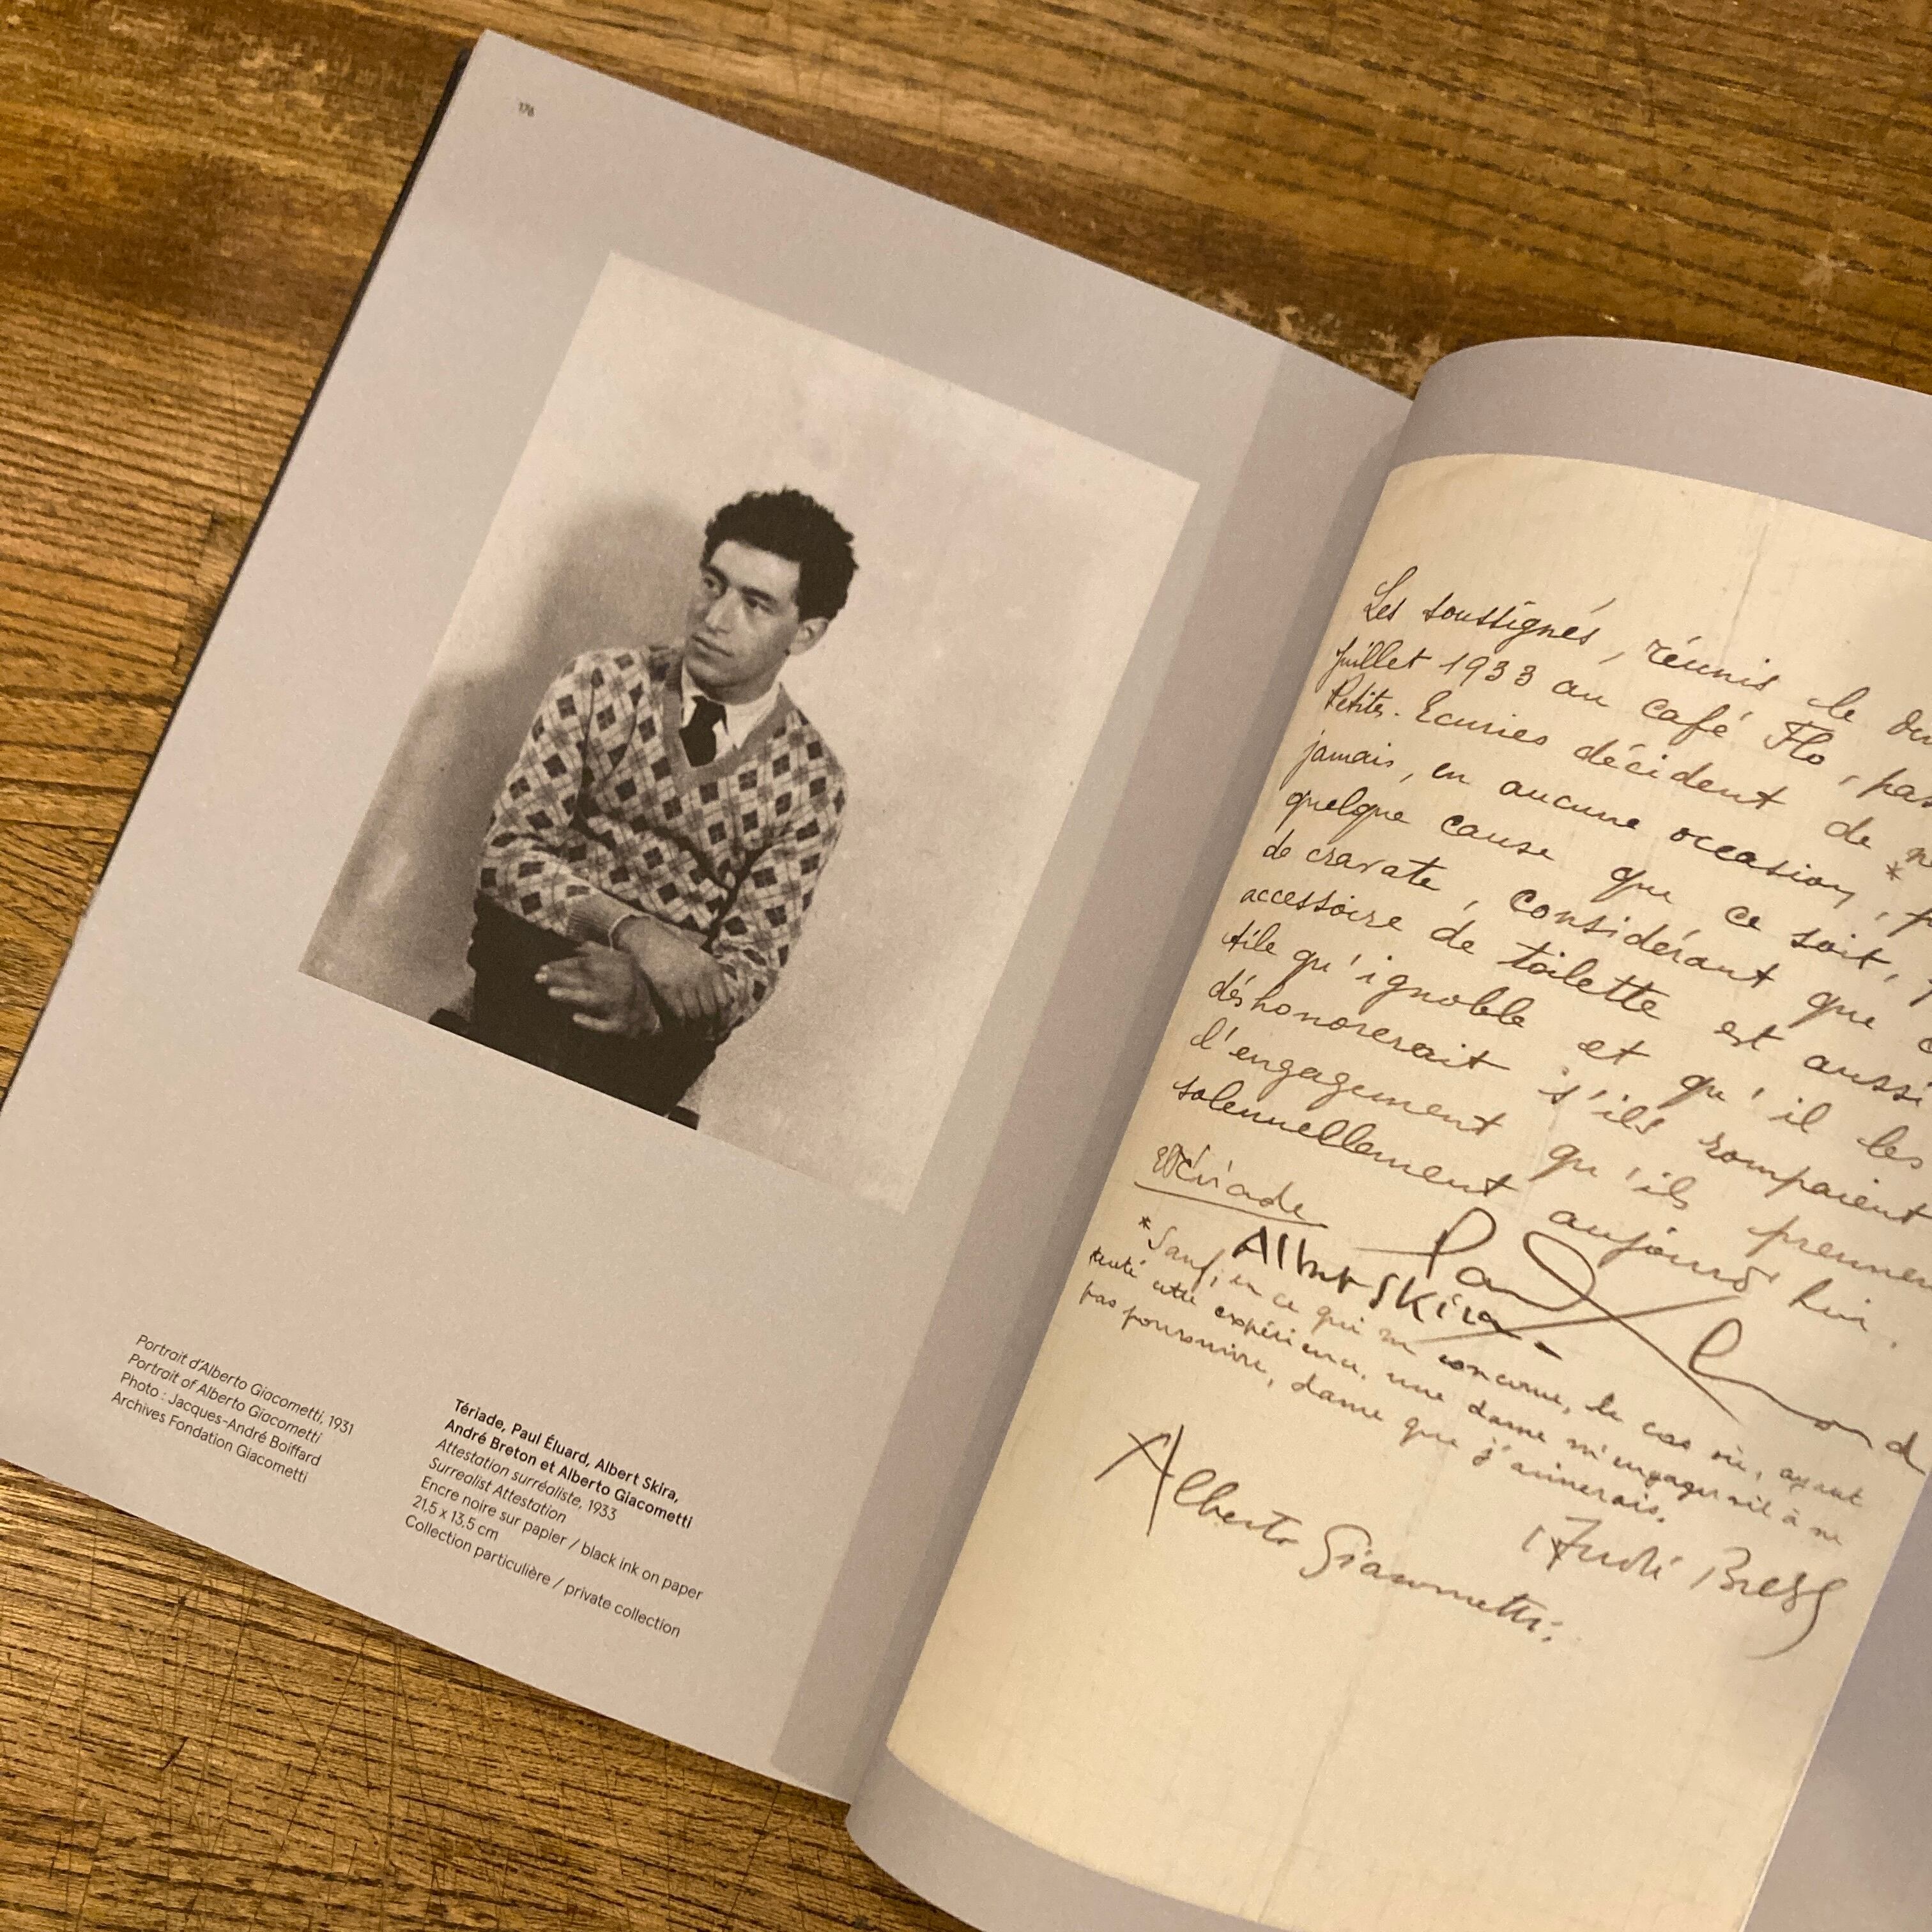 176
Portrait d'Alberto Giacometti, 1931
Portrait of Alberto Giacometti
Photo : Jacques-André Boiffard
Archives Fondation Giacometti
Tériade, Paul Éluard, Albert Skira,
André Breton et Alberto Giacometti
Attestation surréaliste, 1933
Surrealist Attestation
Encre noire sur papier / black ink on paper
21,5 x 13,5 cm
Collection particulière / private collection
Les soussignés, réunis le
juillet 1933 au café Flo,
Petites-Ecuries décident de
jamais, en aucune occasion, *
quelque cause que ce soit,
de cravate, considérant que
accessoire de toilette est aussi
tile qu'ignoble et qu'il les
déshonorerait s'ils rompaient
d'engagement qu'ils prennen
solennellement aujourd'hui.
Tériade
Albert Skira
* Sauf, en ce qui me concerne, le cas où, ayant
tenté cette expérience, une dame m'engagerait à ne
pas poursuivre, dame que j'aimerais.
André Breton
Alberto Giacometti